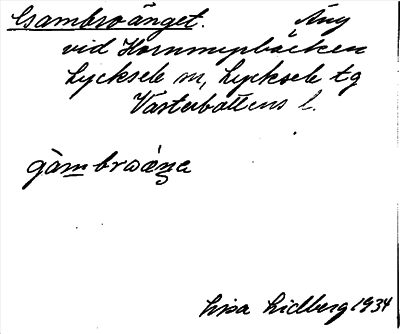 Gsambroänget. Äng
vid Hornmyrbäcken
Lycksele m, Lycksele tg
Västerbottens l.
gàm broǽŋa
Lisa Lidberg 1934